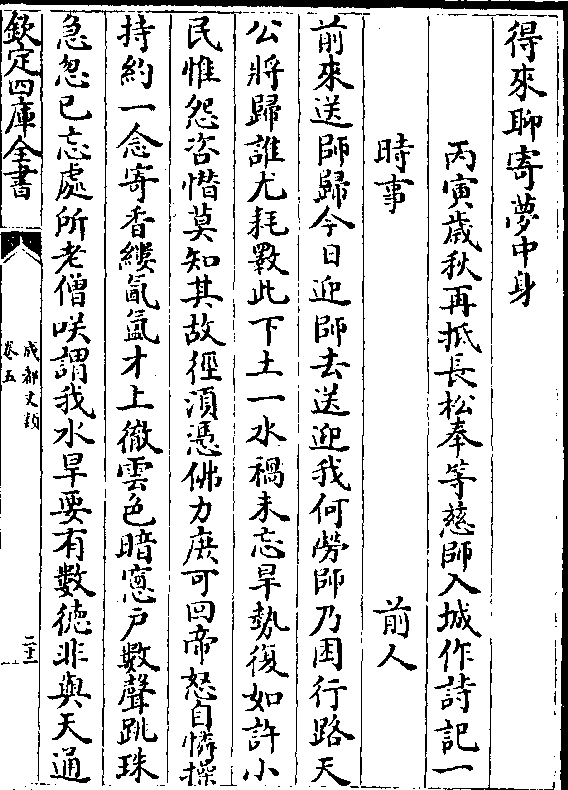 得來聊寄夢中身
丙寅歲秋再抵長松奉等慈師入城作詩記一
時事
前人
前來送師歸今日迎師去送迎我何勞師乃困行路天
公將歸誰尤耗斁此下土一水禍未忘旱勢復如許小
民惟怨咨懵莫知其故徑須憑佛力庶可回帝怒自憐操
持約一念寄香縷氤氳才上徹雲色暗窻户數聲跳珠
急忽已忘處所老僧咲謂我水旱要有數徳非與天通
欽定四庫全書
成都文類
卷五
二十三